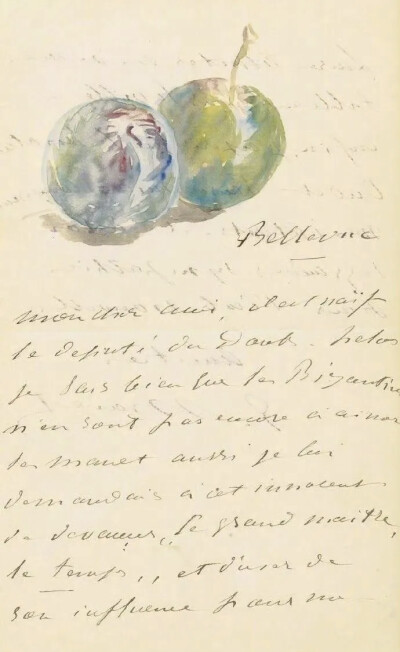 Bellevue
mon cher ami, il est naïf
le député du Doubs. helas
je sais bien que les
n'en sont pas encore à aimer
les manet aussi je lui
demandais à cet innocent
de devancer „ le grand maitre,
le temps „ et d'user de
son influence pour me